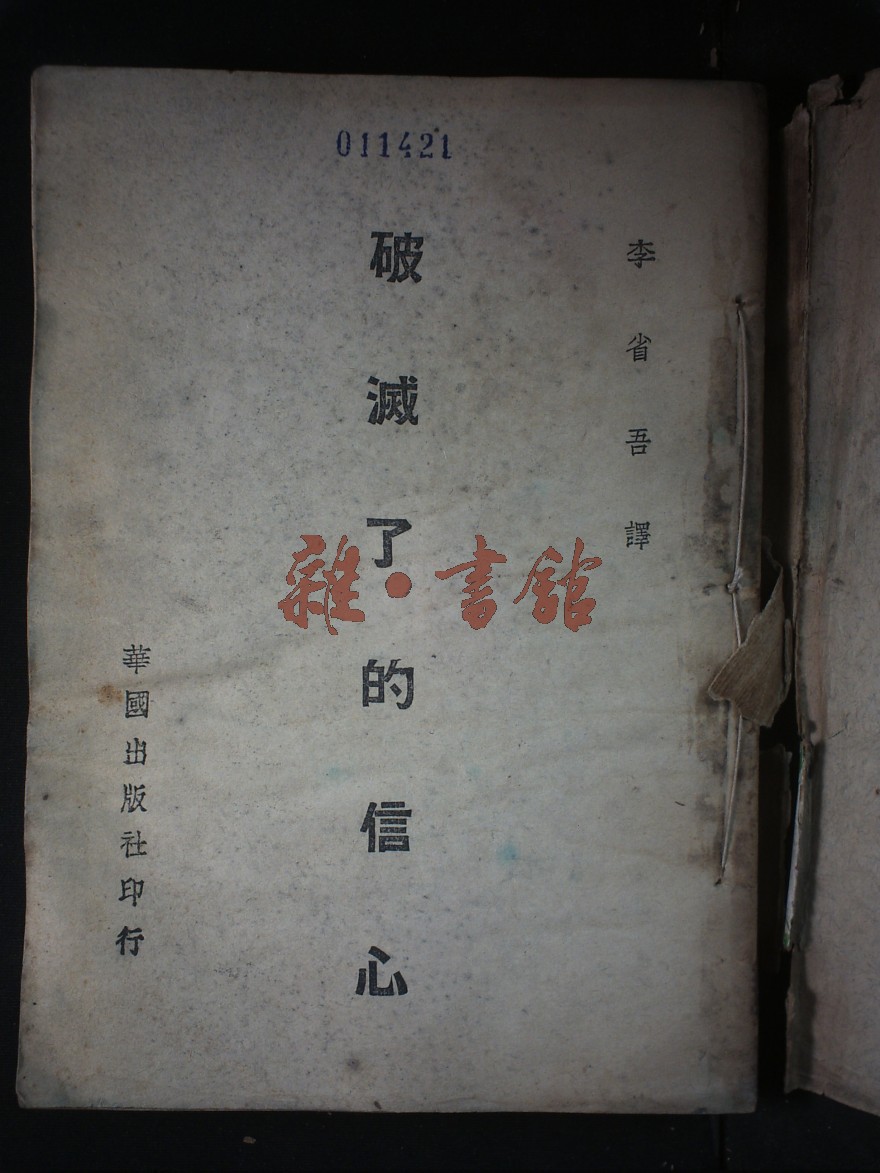 011421
李省吾譯
破滅了的信心
華國出版社印行
雜·書館